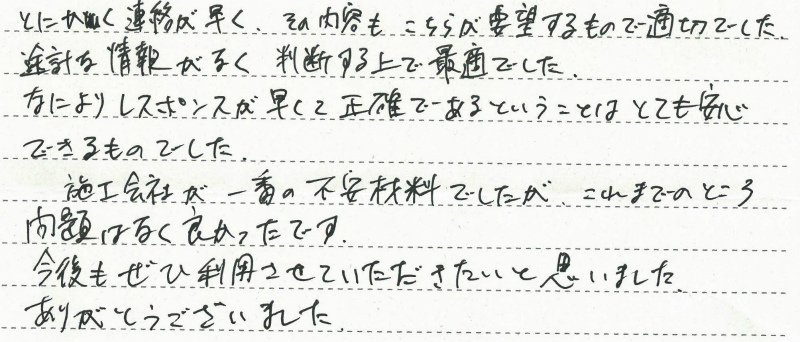 とにかく連絡が早く、その内容もこちらが要望するもので適切でした。
余計な情報がなく 判断する上で最適でした。
なによりレスポンスが早くて正確であるということはとても安心
できるものでした。
施工会社が一番の不安材料でしたが、これまでのところ
問題はなく良かったです。
今後もぜひ利用させていただきたいと思いました。
ありがとうございました。